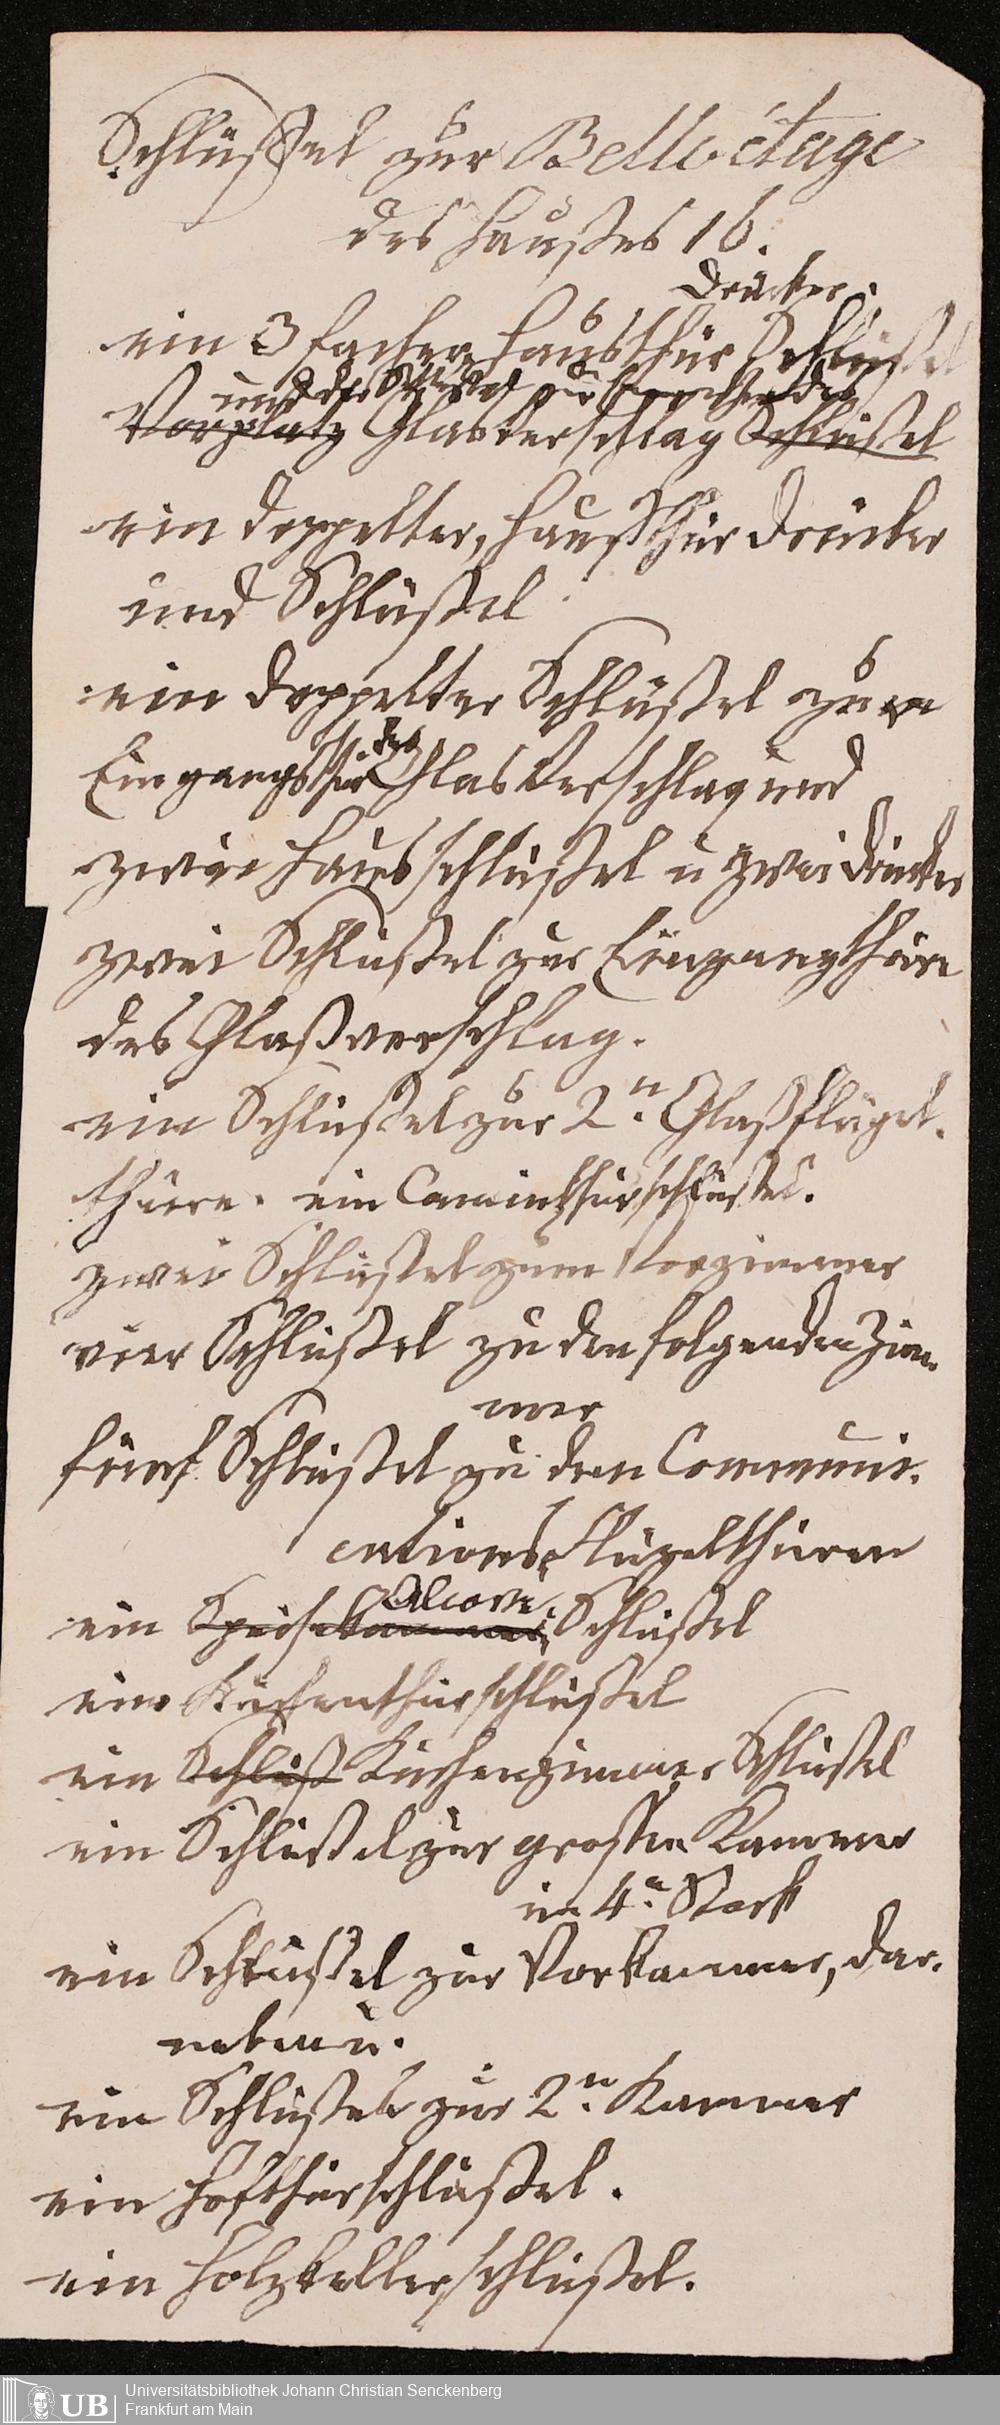 Schlüßel zur Bellétage
des Haußes 16.
Drücker.
ein 3 facher Hausthür Schlüßel
und der Schlüßel zur des
Vorplatz Glasverschlag Schlüßel
ein doppelter, Haußthür Drücker
und Schlüßel
ein doppelter Schlüßel zur
Eingangsthür des Glasverschlag und
zwei Hausschlüßel u zwei Drücker
zwei Schlüßel zur Eingangthüre
des Glaßverschlag.
ein Schlüßel zur 2n. Glaßflügel-
thüre. ein Caminthürschlüßel.
zwei Schlüßel zum Vorzimmer
vier Schlüßel zu den folgenden Zim-
mer
fünf Schlüßel zu den Communi-
cations-Flügelthüren
Alcove
ein Speisekammer Schlüßel
ein Küchenthürschlüßel
ein Schlüß Küchenzimmer Schlüßel
ein Schlüßel zur großen Kammer
im 4n. Stock
ein Schlüßel zur Vorkammer, dar-
neben u.
ein Schlüßel zur 2n. Kammer
ein Hofthürschlüßel.
ein Holzkellerschlüßel.
UB Universitätsbibliothek Johann Christian Senckenberg
Frankfurt am Main